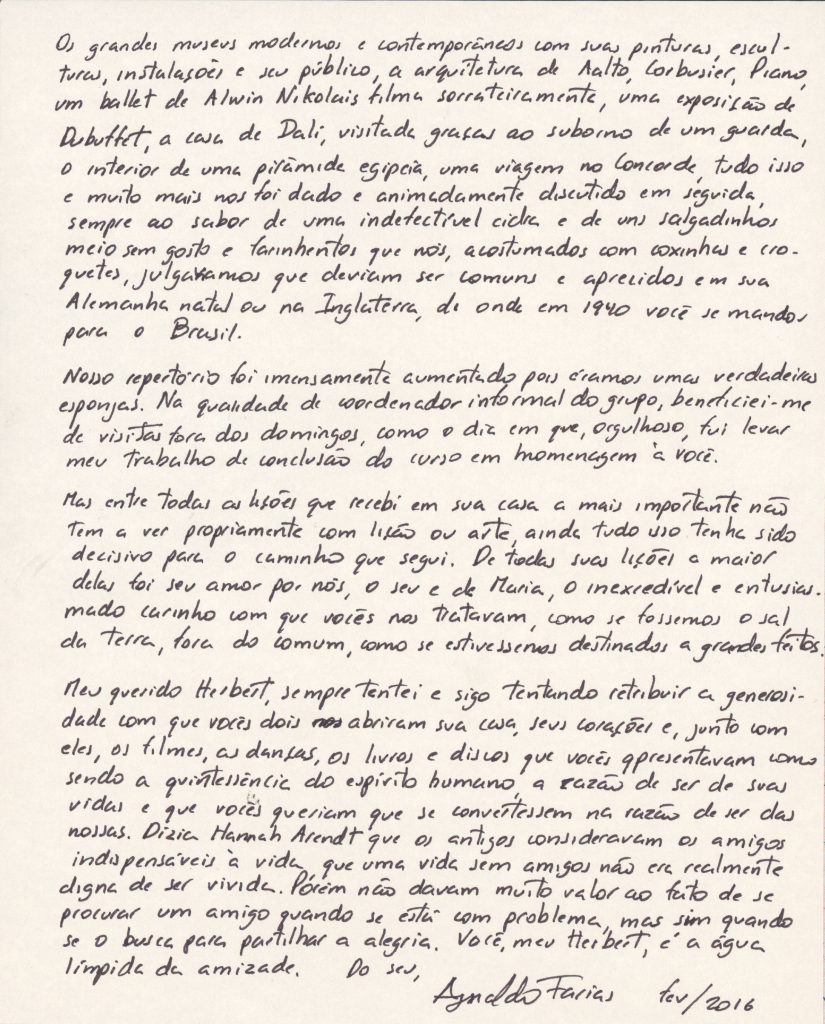 Os grandes museus modernos e contemporâneos com suas pinturas, escul-
turas, instalações e seu público, a arquitetura de Aalto, Corbusier, Piano,
um ballet de Alwin Nikolais filma sorrateiramente, uma exposição de
Dubuffet, a casa de Dali, visitada graças ao suborno de um guarda,
o interior de uma pirâmide egípcia, uma viagem no Concorde, tudo isso
e muito mais nos foi dado e animadamente discutido em seguida,
sempre ao sabor de uma indefectível cidra e de uns salgadinhos
meio sem gosto e farinhentos que nós, acostumados com coxinhas e cro-
quetes, julgávamos que deviam ser comuns e apreciados em sua
Alemanha natal ou na Inglaterra, de onde em 1940 você se mandou
para o Brasil.
Nosso repertório foi imensamente aumentado pois éramos umas verdadeiras
esponjas. Na qualidade de coordenador informal do grupo, beneficiei-me
de visitas fora dos domingos, como o dia em que, orgulhoso, fui levar
meu trabalho de conclusão do curso em homenagem à você.
Mas entre todas as lições que recebi em sua casa a mais importante não
tem a ver propriamente com lição ou arte, ainda tudo isso tenha sido
decisivo para o caminho que segui. De todas suas lições a maior
delas foi seu amor por nós, o seu e de Maria, o inexcedível e entusias-
mado carinho com que vocês nos tratavam, como se fossemos o sal
da terra, fora do comum, como se estivessemos destinados a grandes feitos.
Meu querido Herbert, sempre tentei e sigo tentando retribuir a generosi-
dade com que vocês dois abriram sua casa, seus corações e, junto com
eles, os filmes, as danças, os livros e discos que vocês apresentavam como
sendo a quintessência do espírito humano, a razão de ser de suas
vidas e que vocês queriam que se convertessem na razão de ser das
nossas. Dizia Hannah Arendt que os antigos consideravam os amigos
indispensáveis à vida, que uma vida sem amigos não era realmente
digna de ser vivida. Porém não davam muito valor ao fato de se
procurar um amigo quando se está com problema, mas sim quando
se o busca para partilhar a alegria. Você, meu Herbert, é a água
límpida da amizade. Do seu,
Agnaldo Farias fev/2016